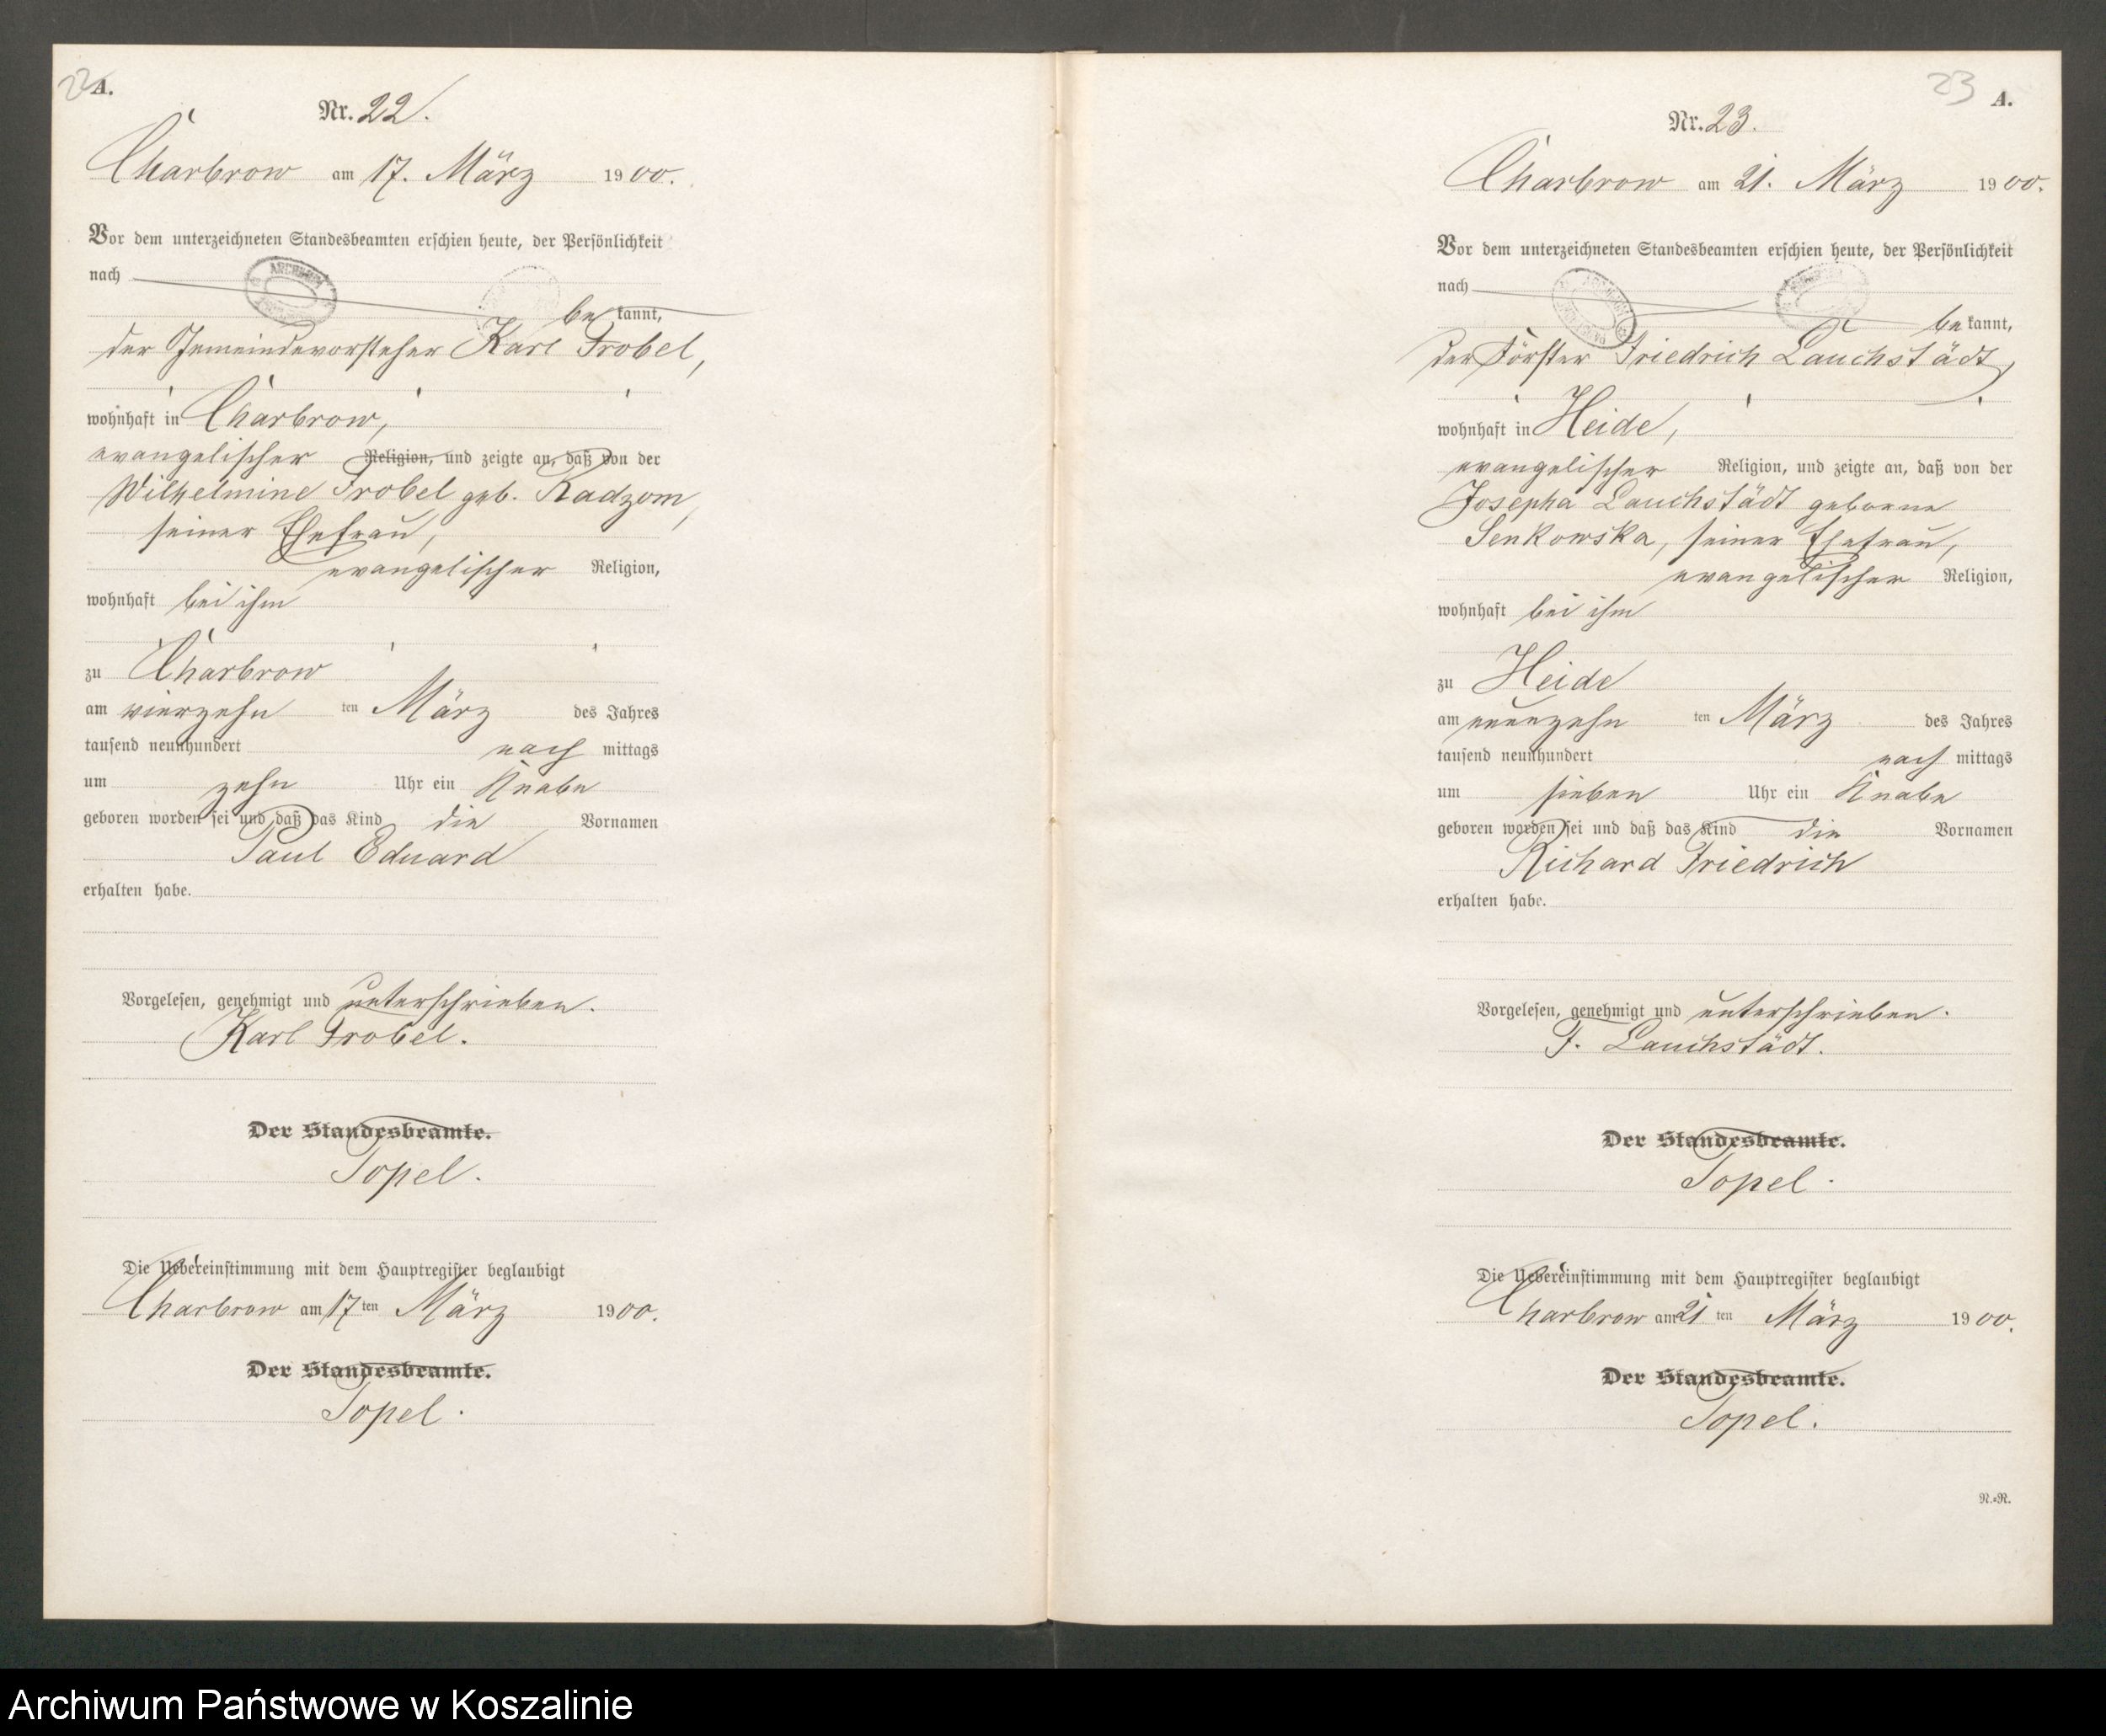 22
A.
Nr. 22.
Charbrow am 17. März 1900.
Vor dem unterzeichneten Standesbeamten erschien heute, der Persönlichkeit
nach
be kannt,
der Gemeindevorsteher Karl Trobel,
wohnhaft in Charbrow,
evangelischer Religion, und zeigte an, daß von der
Wilhelmine Trobel geb. Radzom,
seiner Ehefrau,
evangelischer Religion,
wohnhaft bei ihm
zu Charbrow
am vierzehn ten März des Jahres
tausend neunhundert nach mittags
um zehn Uhr ein Knabe
geboren worden sei und daß das Kind die Vornamen
Paul Eduard
erhalten habe.
Vorgelesen, genehmigt und unterschrieben.
Karl Trobel.
Der Standesbeamte.
Topel.
Die Uebereinstimmung mit dem Hauptregister beglaubigt
Charbrow am 17 ten März 1900.
Der Standesbeamte.
Topel.
23
A.
Nr. 23.
Charbrow am 21. März 1900.
Vor dem unterzeichneten Standesbeamten erschien heute, der Persönlichkeit
nach
be kannt,
der Förster Friedrich Lauchstädt,
wohnhaft in Heide,
evangelischer Religion, und zeigte an, daß von der
Josepha Lauchstädt geborne
Senkowska, seiner Ehefrau,
evangelischer Religion,
wohnhaft bei ihm
zu Heide
am neunzehn ten März des Jahres
tausend neunhundert nach mittags
um sieben Uhr ein Knabe
geboren worden sei und daß das Kind die Vornamen
Richard Friedrich
erhalten habe.
Vorgelesen, genehmigt und unterschrieben.
F. Lauchstädt.
Der Standesbeamte.
Topel.
Die Uebereinstimmung mit dem Hauptregister beglaubigt
Charbrow am 21 ten März 1900.
Der Standesbeamte.
Topel.
N.=R.
Archiwum Państwowe w Koszalinie